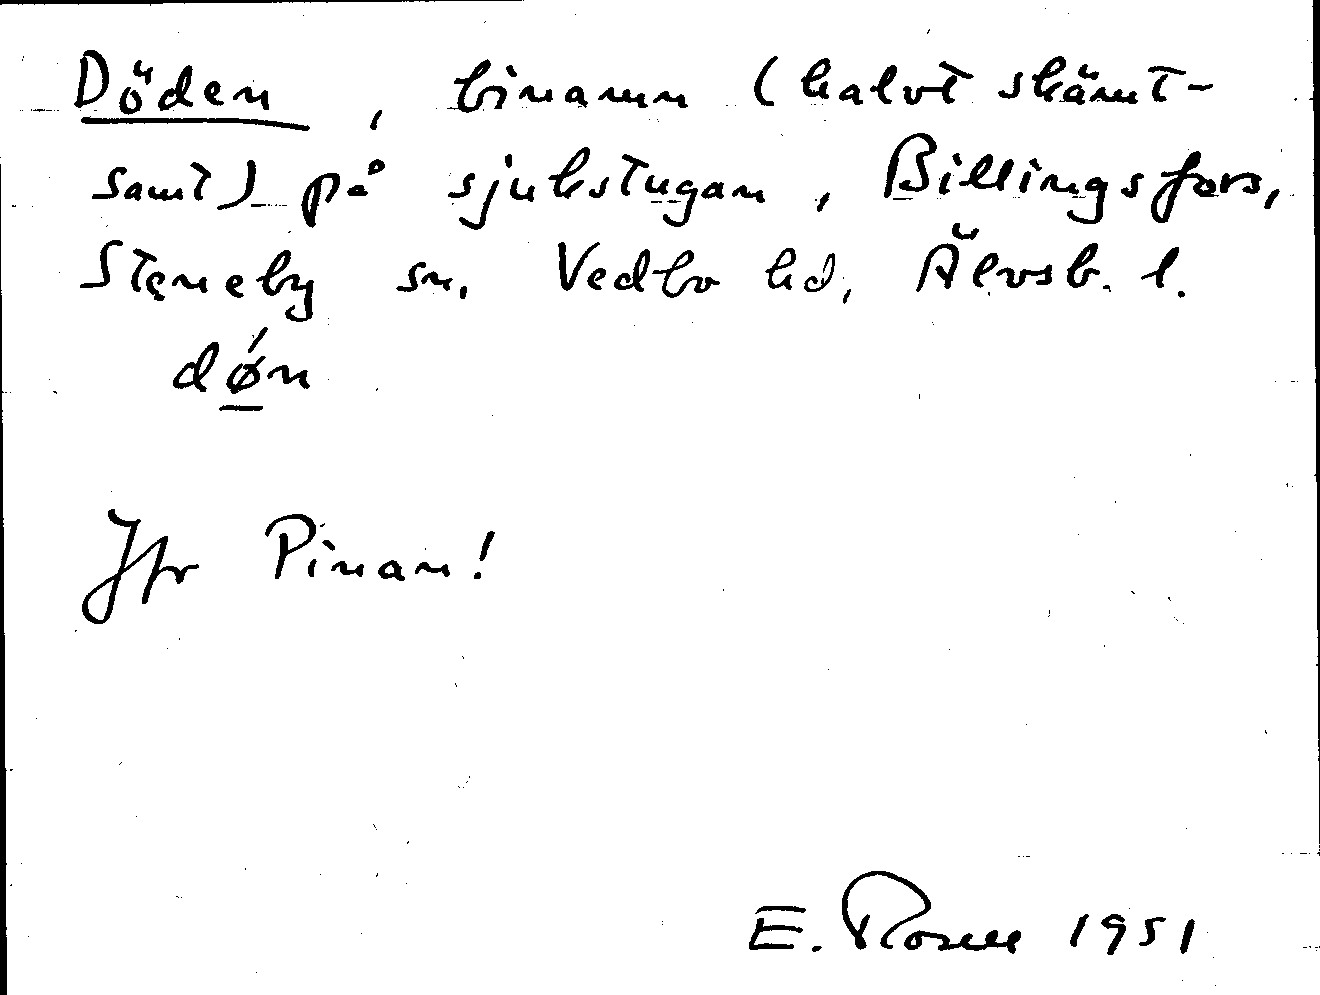 Döden, binamn (halvt skämt-
samt) på sjukstugan, Billingsfors,
Steneby sn, Vedbo hd, Älvsb. l.
dǿn
Jfr Pinan!
E. Rosell 1951